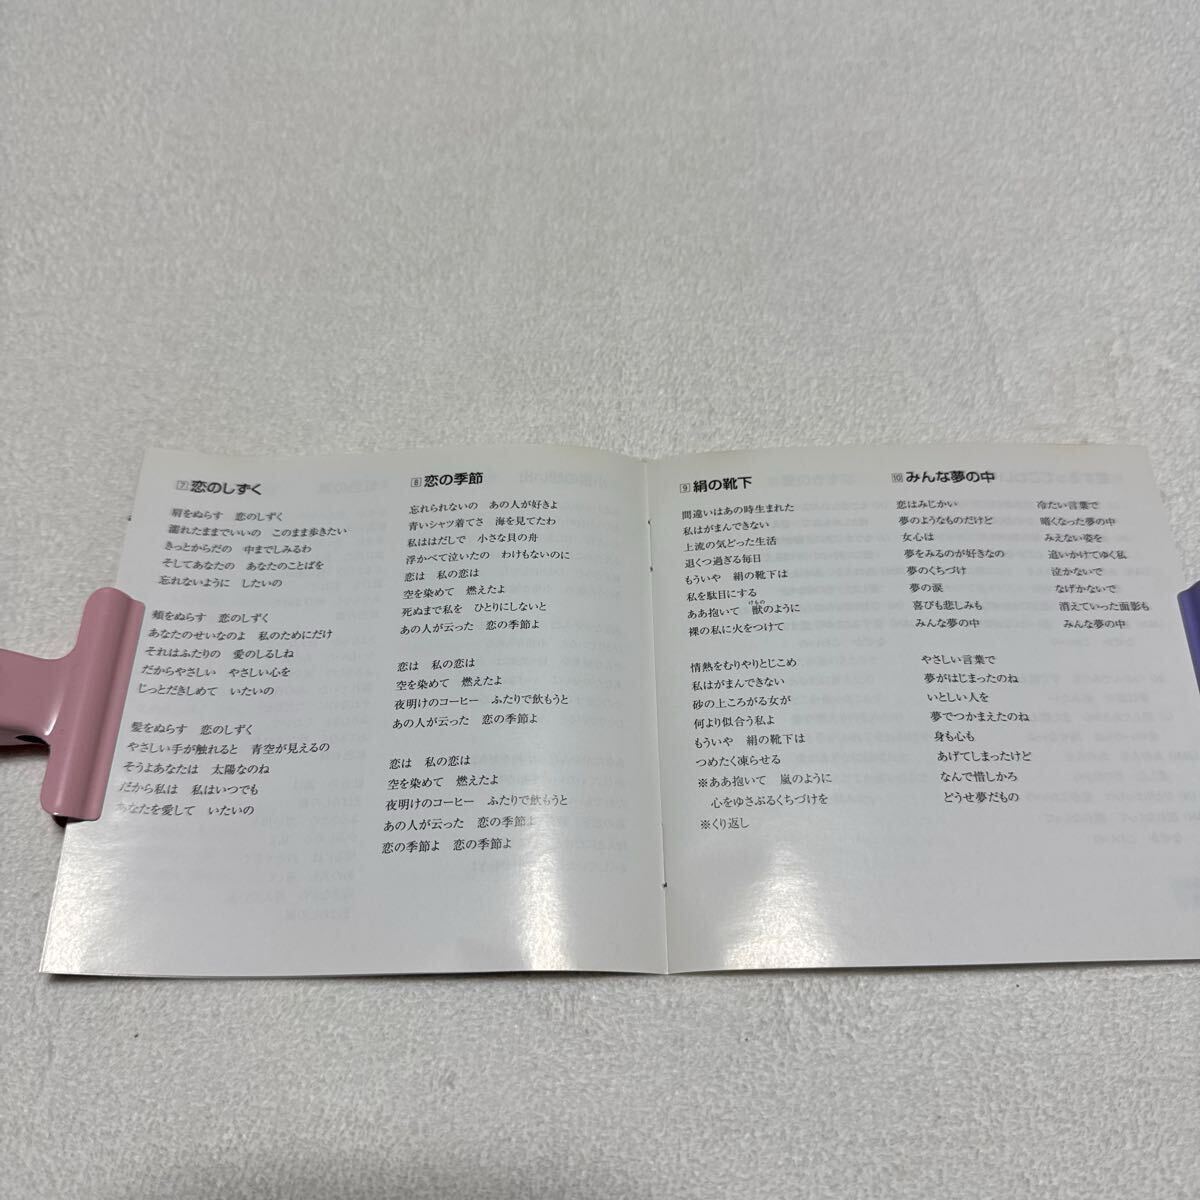 7 恋のしずく
肩をぬらす 恋のしずく
濡れたままでいいの このまま歩きたい
きっとからだの 中までしみるわ
そしてあなたの あなたのことばを
忘れないように したいの
頬をぬらす 恋のしずく
あなたのせいなのよ 私のためにだけ
それはふたりの 愛のしるしね
だからやさしい やさしい心を
じっとだきしめて いたいの
髪をぬらす 恋のしずく
やさしい手が触れると 青空が見えるの
そうよあなたは 太陽なのね
だから私は 私はいつでも
あなたを愛して いたいの
8 恋の季節
忘れられないの あの人が好きよ
青いシャツ着てさ 海を見てたわ
私ははだしで 小さな貝の舟
浮かべて泣いたの わけもないのに
恋は 私の恋は
空を染めて 燃えたよ
死ぬまで私を ひとりにしないと
あの人が云った 恋の季節よ
恋は 私の恋は
空を染めて 燃えたよ
夜明けのコーヒー ふたりで飲もうと
あの人が云った 恋の季節よ
恋は 私の恋は
空を染めて 燃えたよ
夜明けのコーヒー ふたりで飲もうと
あの人が云った 恋の季節よ
恋の季節よ 恋の季節よ
9 絹の靴下
間違いはあの時生まれた
私はがまんできない
上流の気どった生活
退くつ過ぎる毎日
もういや 絹の靴下は
私を駄目にする
ああ抱いて 獣のように
けもの
裸の私に火をつけて
情熱をむりやりとじこめ
私はがまんできない
砂の上ころがる女が
何より似合う私よ
もういや 絹の靴下は
つめたく凍らせる
※ああ抱いて 嵐のように
心をゆさぶるくちづけを
※くり返し
10 みんな夢の中
恋はみじかい
夢のようなものだけど
女心は
夢をみるのが好きなの
夢のくちづけ
夢の涙
喜びも悲しみも
みんな夢の中
やさしい言葉で
夢がはじまったのね
いとしい人を
夢でつかまえたのね
身も心も
あげてしまったけど
なんで惜しかろ
どうせ夢だもの
冷たい言葉で
暗くなった夢の中
みえない姿を
追いかけてゆく私
泣かないで
なげかないで
消えていった面影も
みんな夢の中